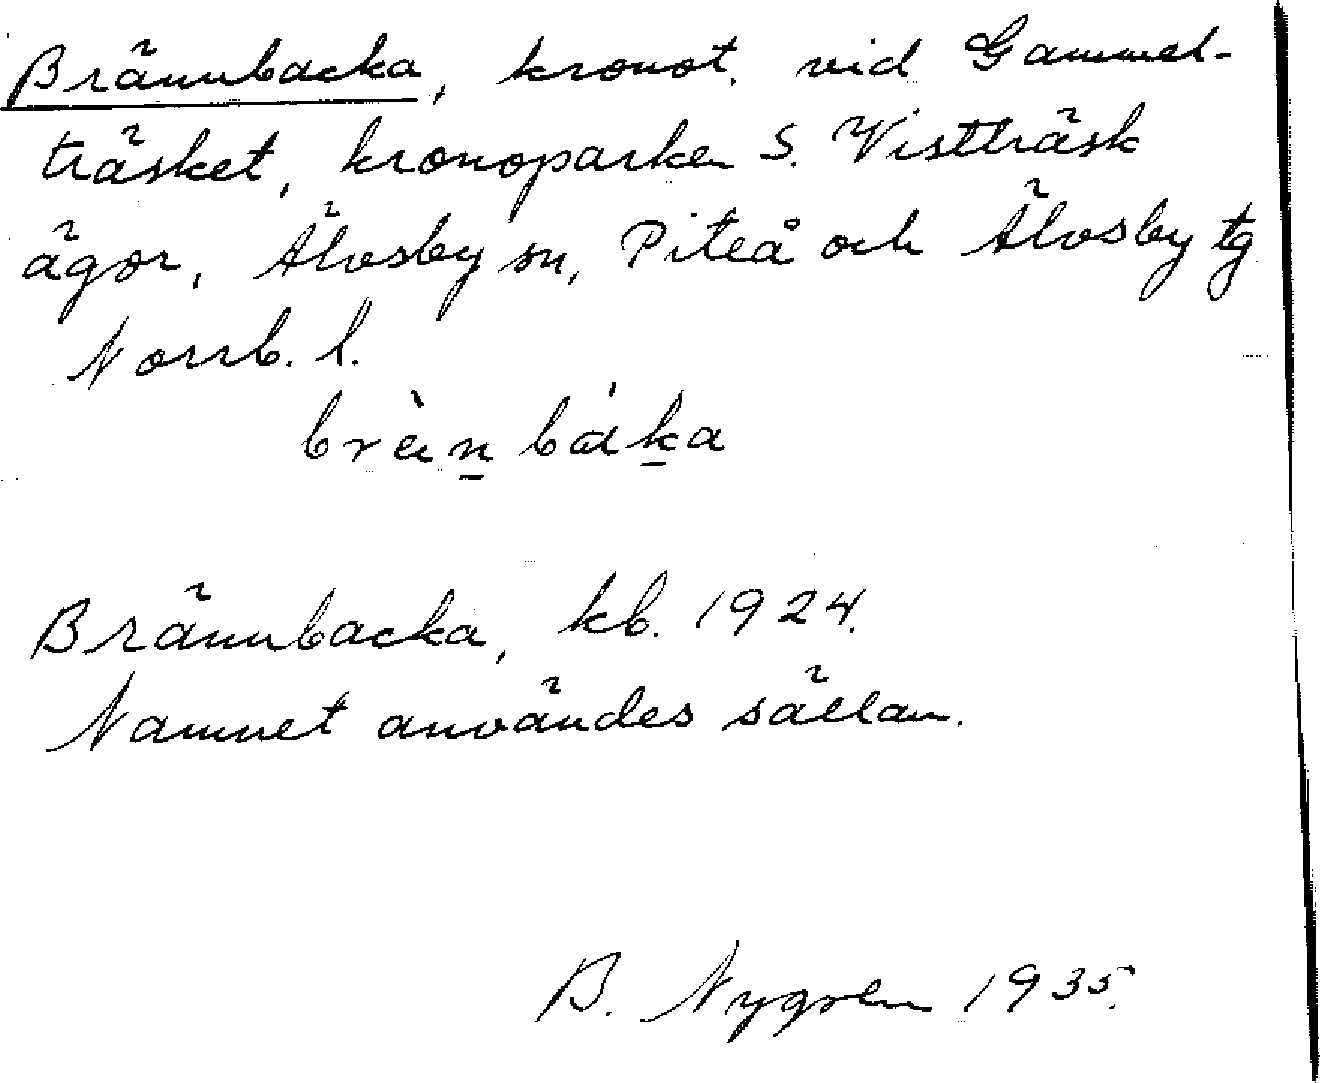 Brännbacka, kronot. vid Gammel-
träsket, kronoparken S. Vistträsk
ägor, Älvsby sn, Piteå och Älvsby tg
Norrb. l.
brèn̲bák̲a
Brännbacka, kb. 1924.
Namnet användes sällan.
B. Nygren 1935.